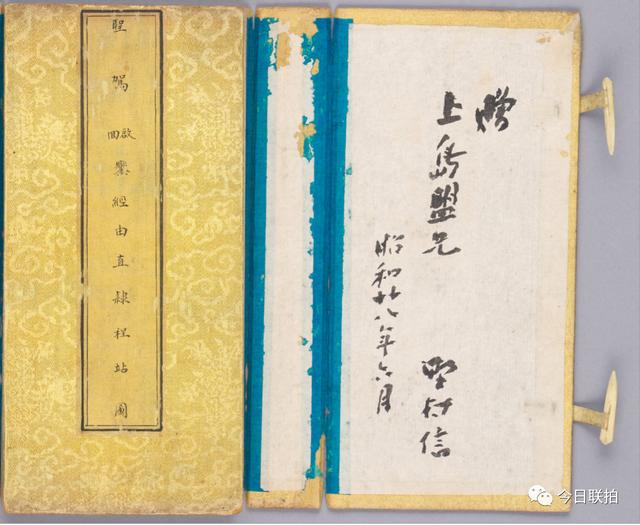 聖駕啟回鑾經由直隸程站圖
贈
上島盟兄
野村信
昭和廿八年六月
今日联拍